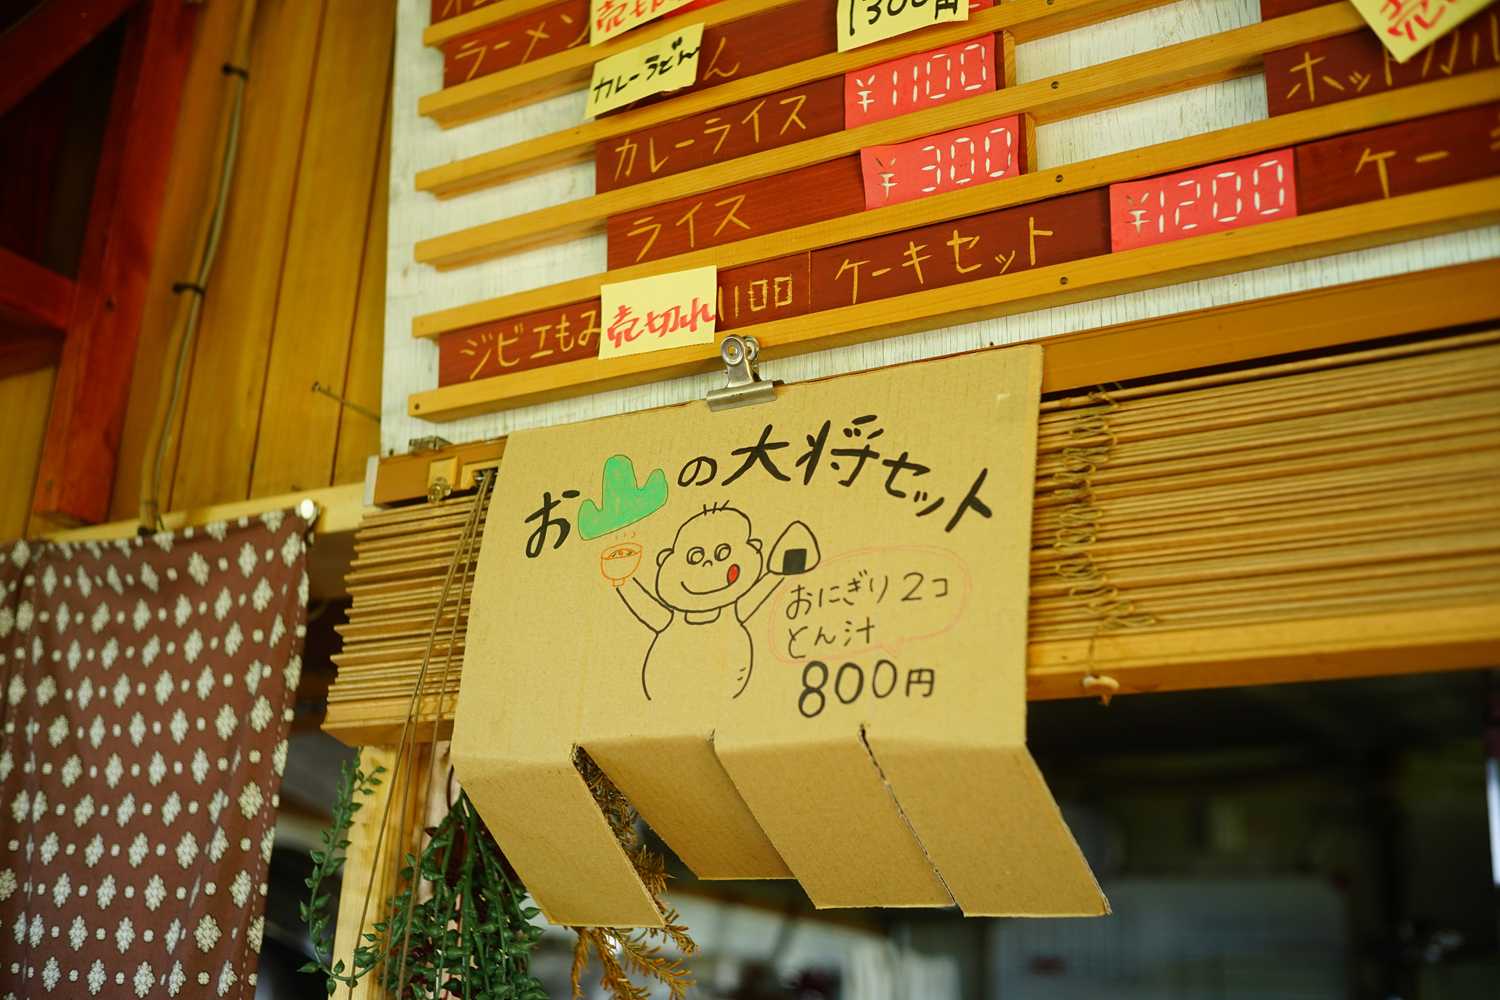 ラーメン
売切れ
カレーうどん
1300円
カレーライス ¥1100
ホット
ライス ¥300
ケーキセット ¥1200
ケーキ
ジビエもみ 売切れ 1100
お山の大将セット
おにぎり2コ
とん汁
800円